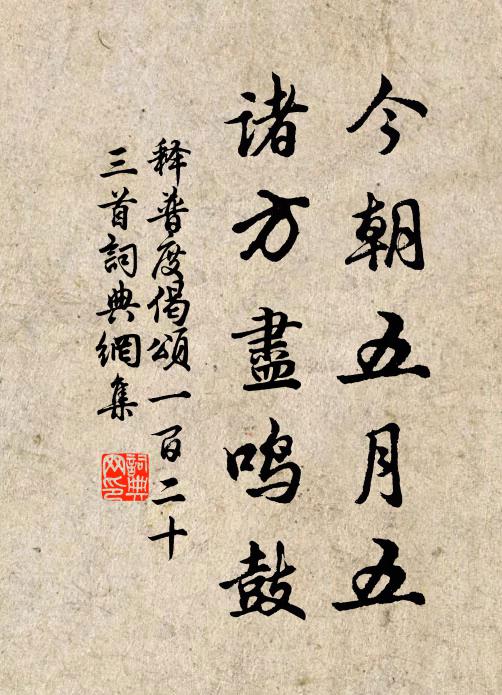 今朝五月五
诸方盡鸣鼓
释普度偈頌一百二十
三首詞典網集
詞典
网印